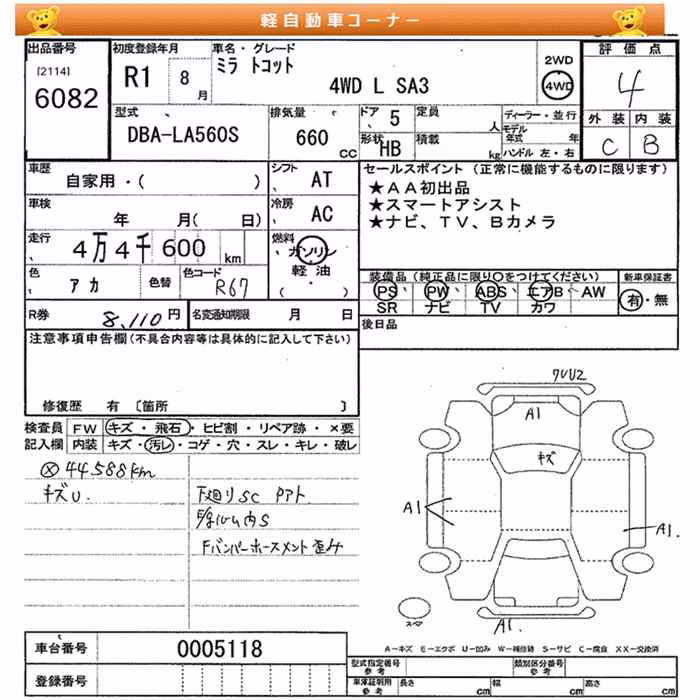 軽自動車コーナー
出品番号
[2114]
6082
初度登録年月
R1 8
月
車名・グレード
ミラ トコット
4WD L SA3
2WD
4WD
評価点
4
外装 内装
C B
型式
DBA-LA560S
排気量
660
CC
ドア 5
形状 HB
定員
人
積載
kg
ディーラー・並行
モデル年式 年
ハンドル 左・右
車歴
自家用・( )
シフト AT
車検
年 月( 日)
冷房 AC
走行
4万4千600 km
燃料 ガソリン
軽油
( )
色
アカ
色替
色コード
R67
R券
8,110円
名変通知期限 月 日
セールスポイント (正常に機能するものに限ります)
★AA初出品
★スマートアシスト
★ナビ、TV、Bカメラ
装備品 (純正品に限り○をつけてください)
PS PW ABS エアB AW
SR ナビ TV カワ
新車保証書
有・無
後日品
注意事項申告欄(不具合内容等は具体的に記入して下さい)
修復歴 有 〔箇所 〕
検査員記入欄
FW キズ・飛石・ヒビ割・リペア跡・×要
内装 キズ・汚レ・コゲ・穴・スレ・キレ・破レ
44.588km
キズU.
下廻りSC
A1
キズ
A1
A1.
A1.
スマ
A-キズ E-エクボ U-凹み W-補修跡 S-サビ C-腐食 XX-交換済
車台番号 0005118
登録番号
型式指定番号 参考
類別区分番号 参考
車庫証明用 参考
長さ cm
幅 cm
高さ cm